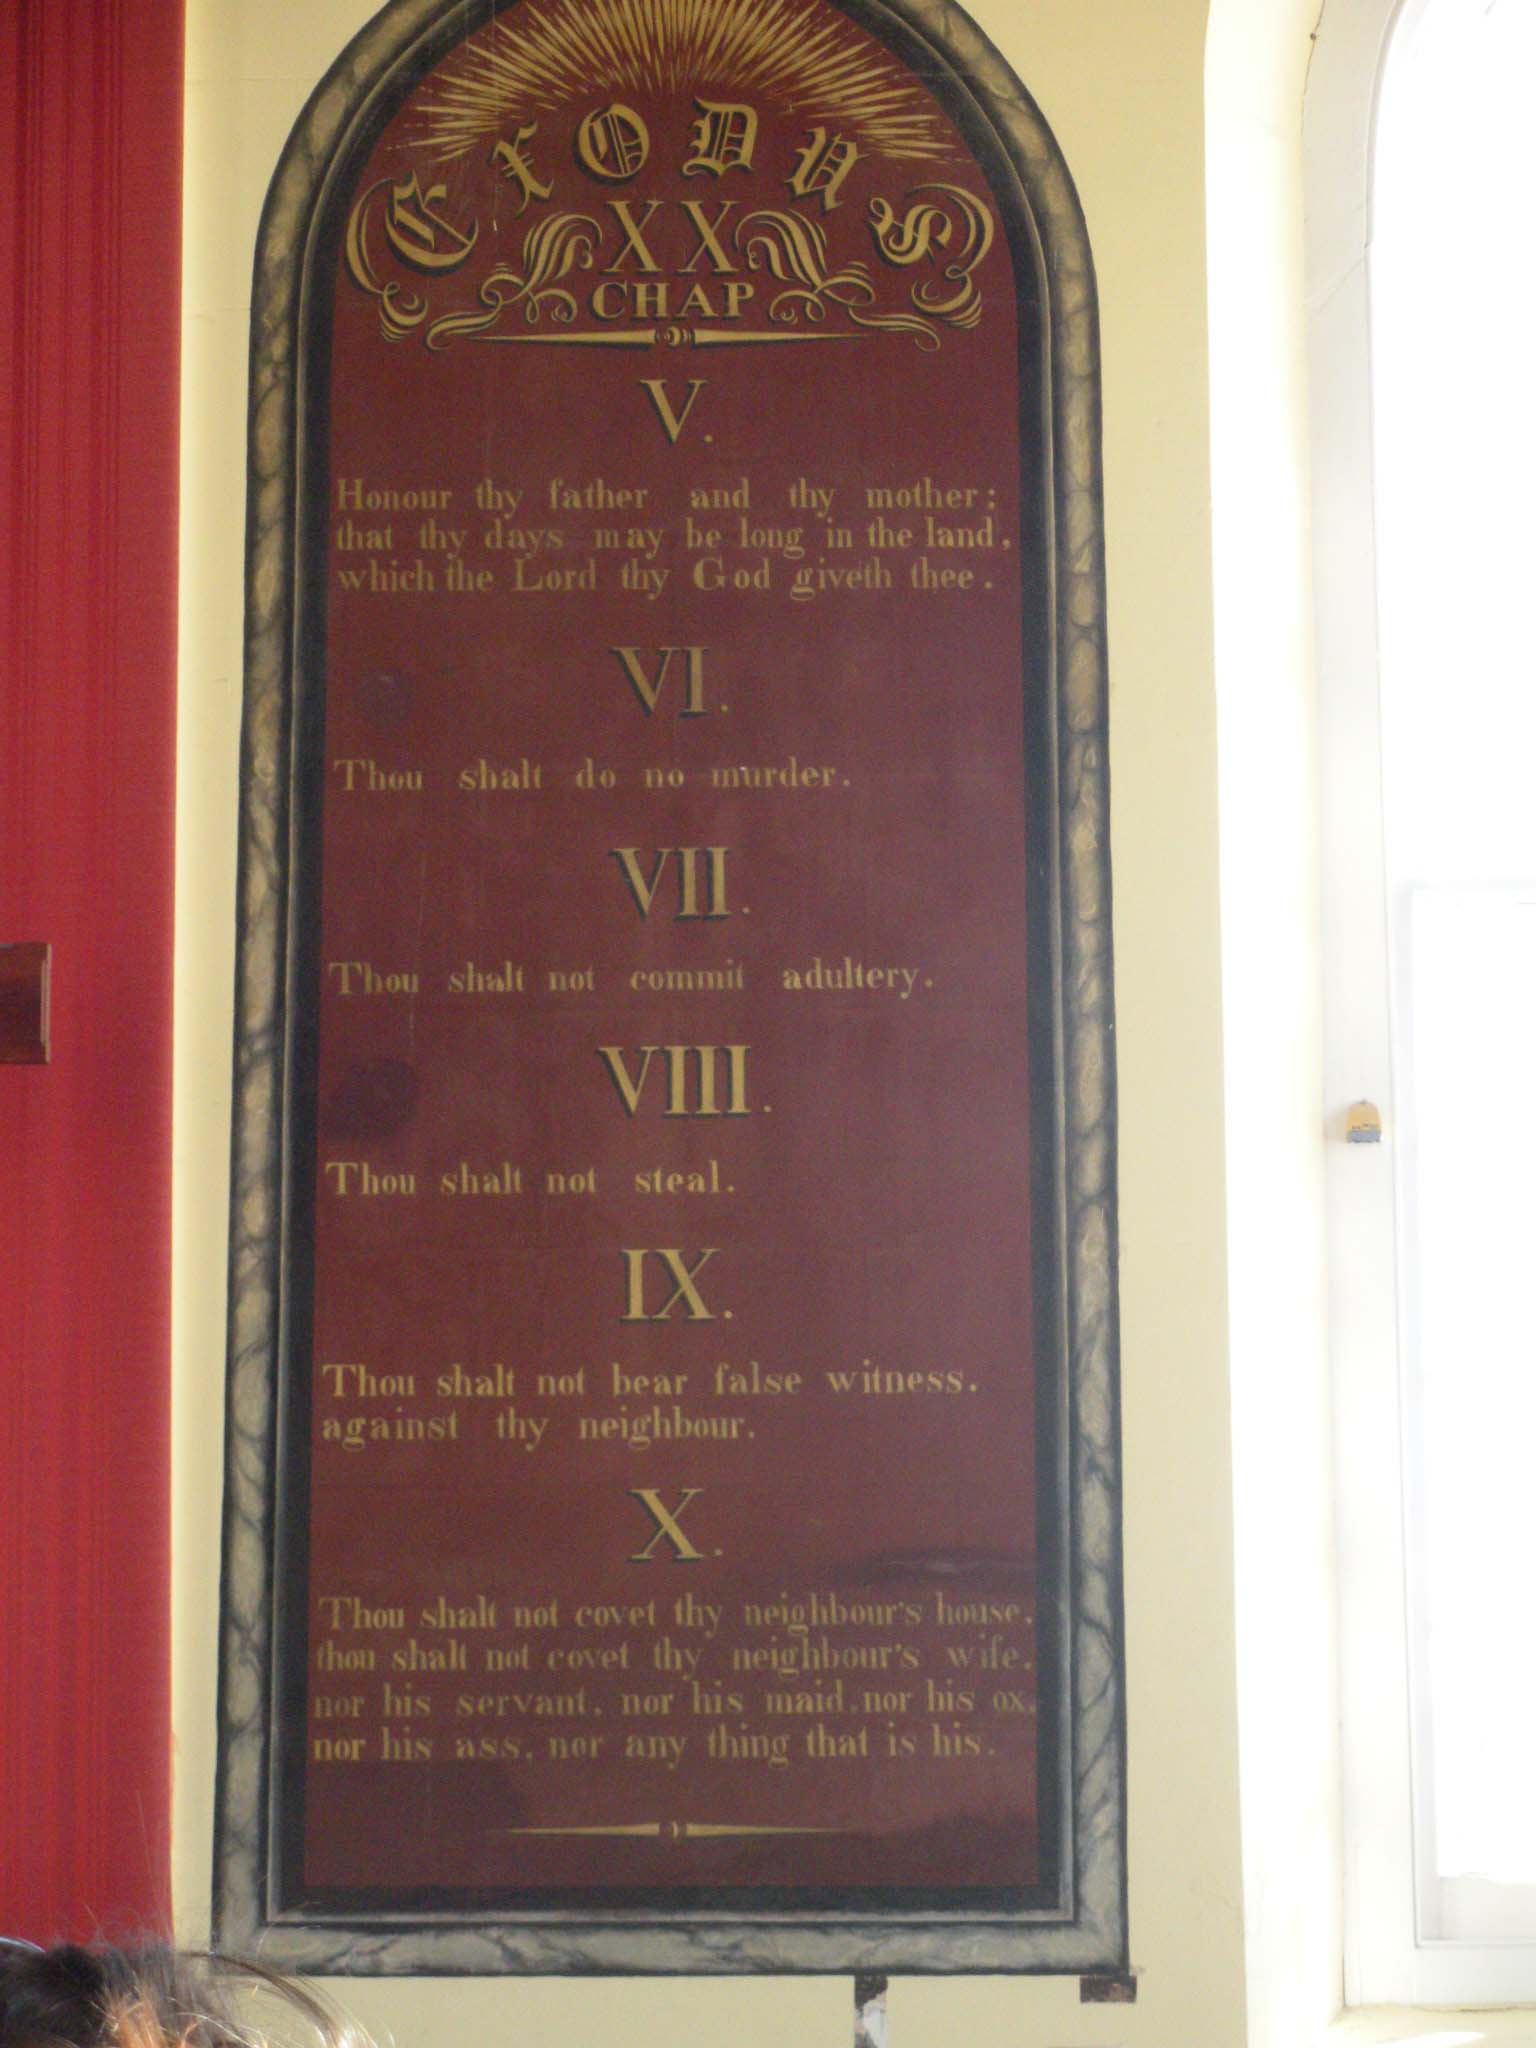 Exodus
XX
CHAP
V.
Honour thy father and thy mother;
that thy days may be long in the land,
which the Lord thy God giveth thee.
VI.
Thou shalt do no murder.
VII.
Thou shalt not commit adultery.
VIII.
Thou shalt not steal.
IX.
Thou shalt not bear false witness.
against thy neighbour.
X.
Thou shalt not covet thy neighbour's house,
thou shalt not covet thy neighbour's wife,
nor his servant, nor his maid, nor his ox,
nor his ass, nor any thing that is his.